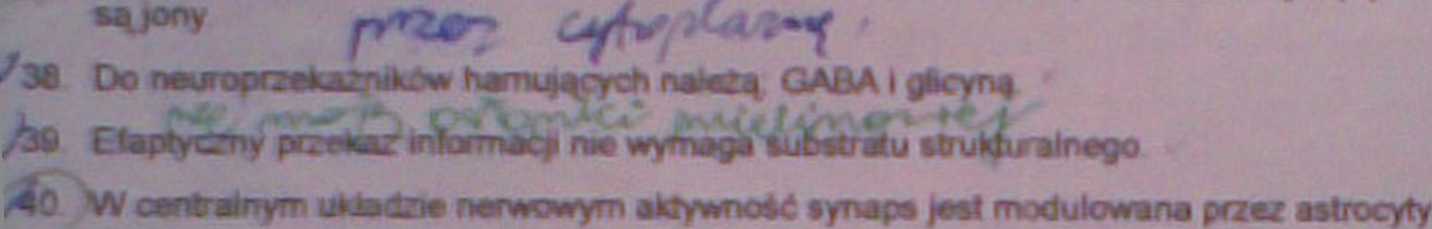 są jony
przez cytoplazmę.
38. Do neuroprzekaźników hamujących należą: GABA i glicyna.
nie mają osłonki mielinowej
39. Efaptyczny przekaz informacji nie wymaga substratu strukturalnego.
40. W centralnym układzie nerwowym aktywność synaps jest modulowana przez astrocyty